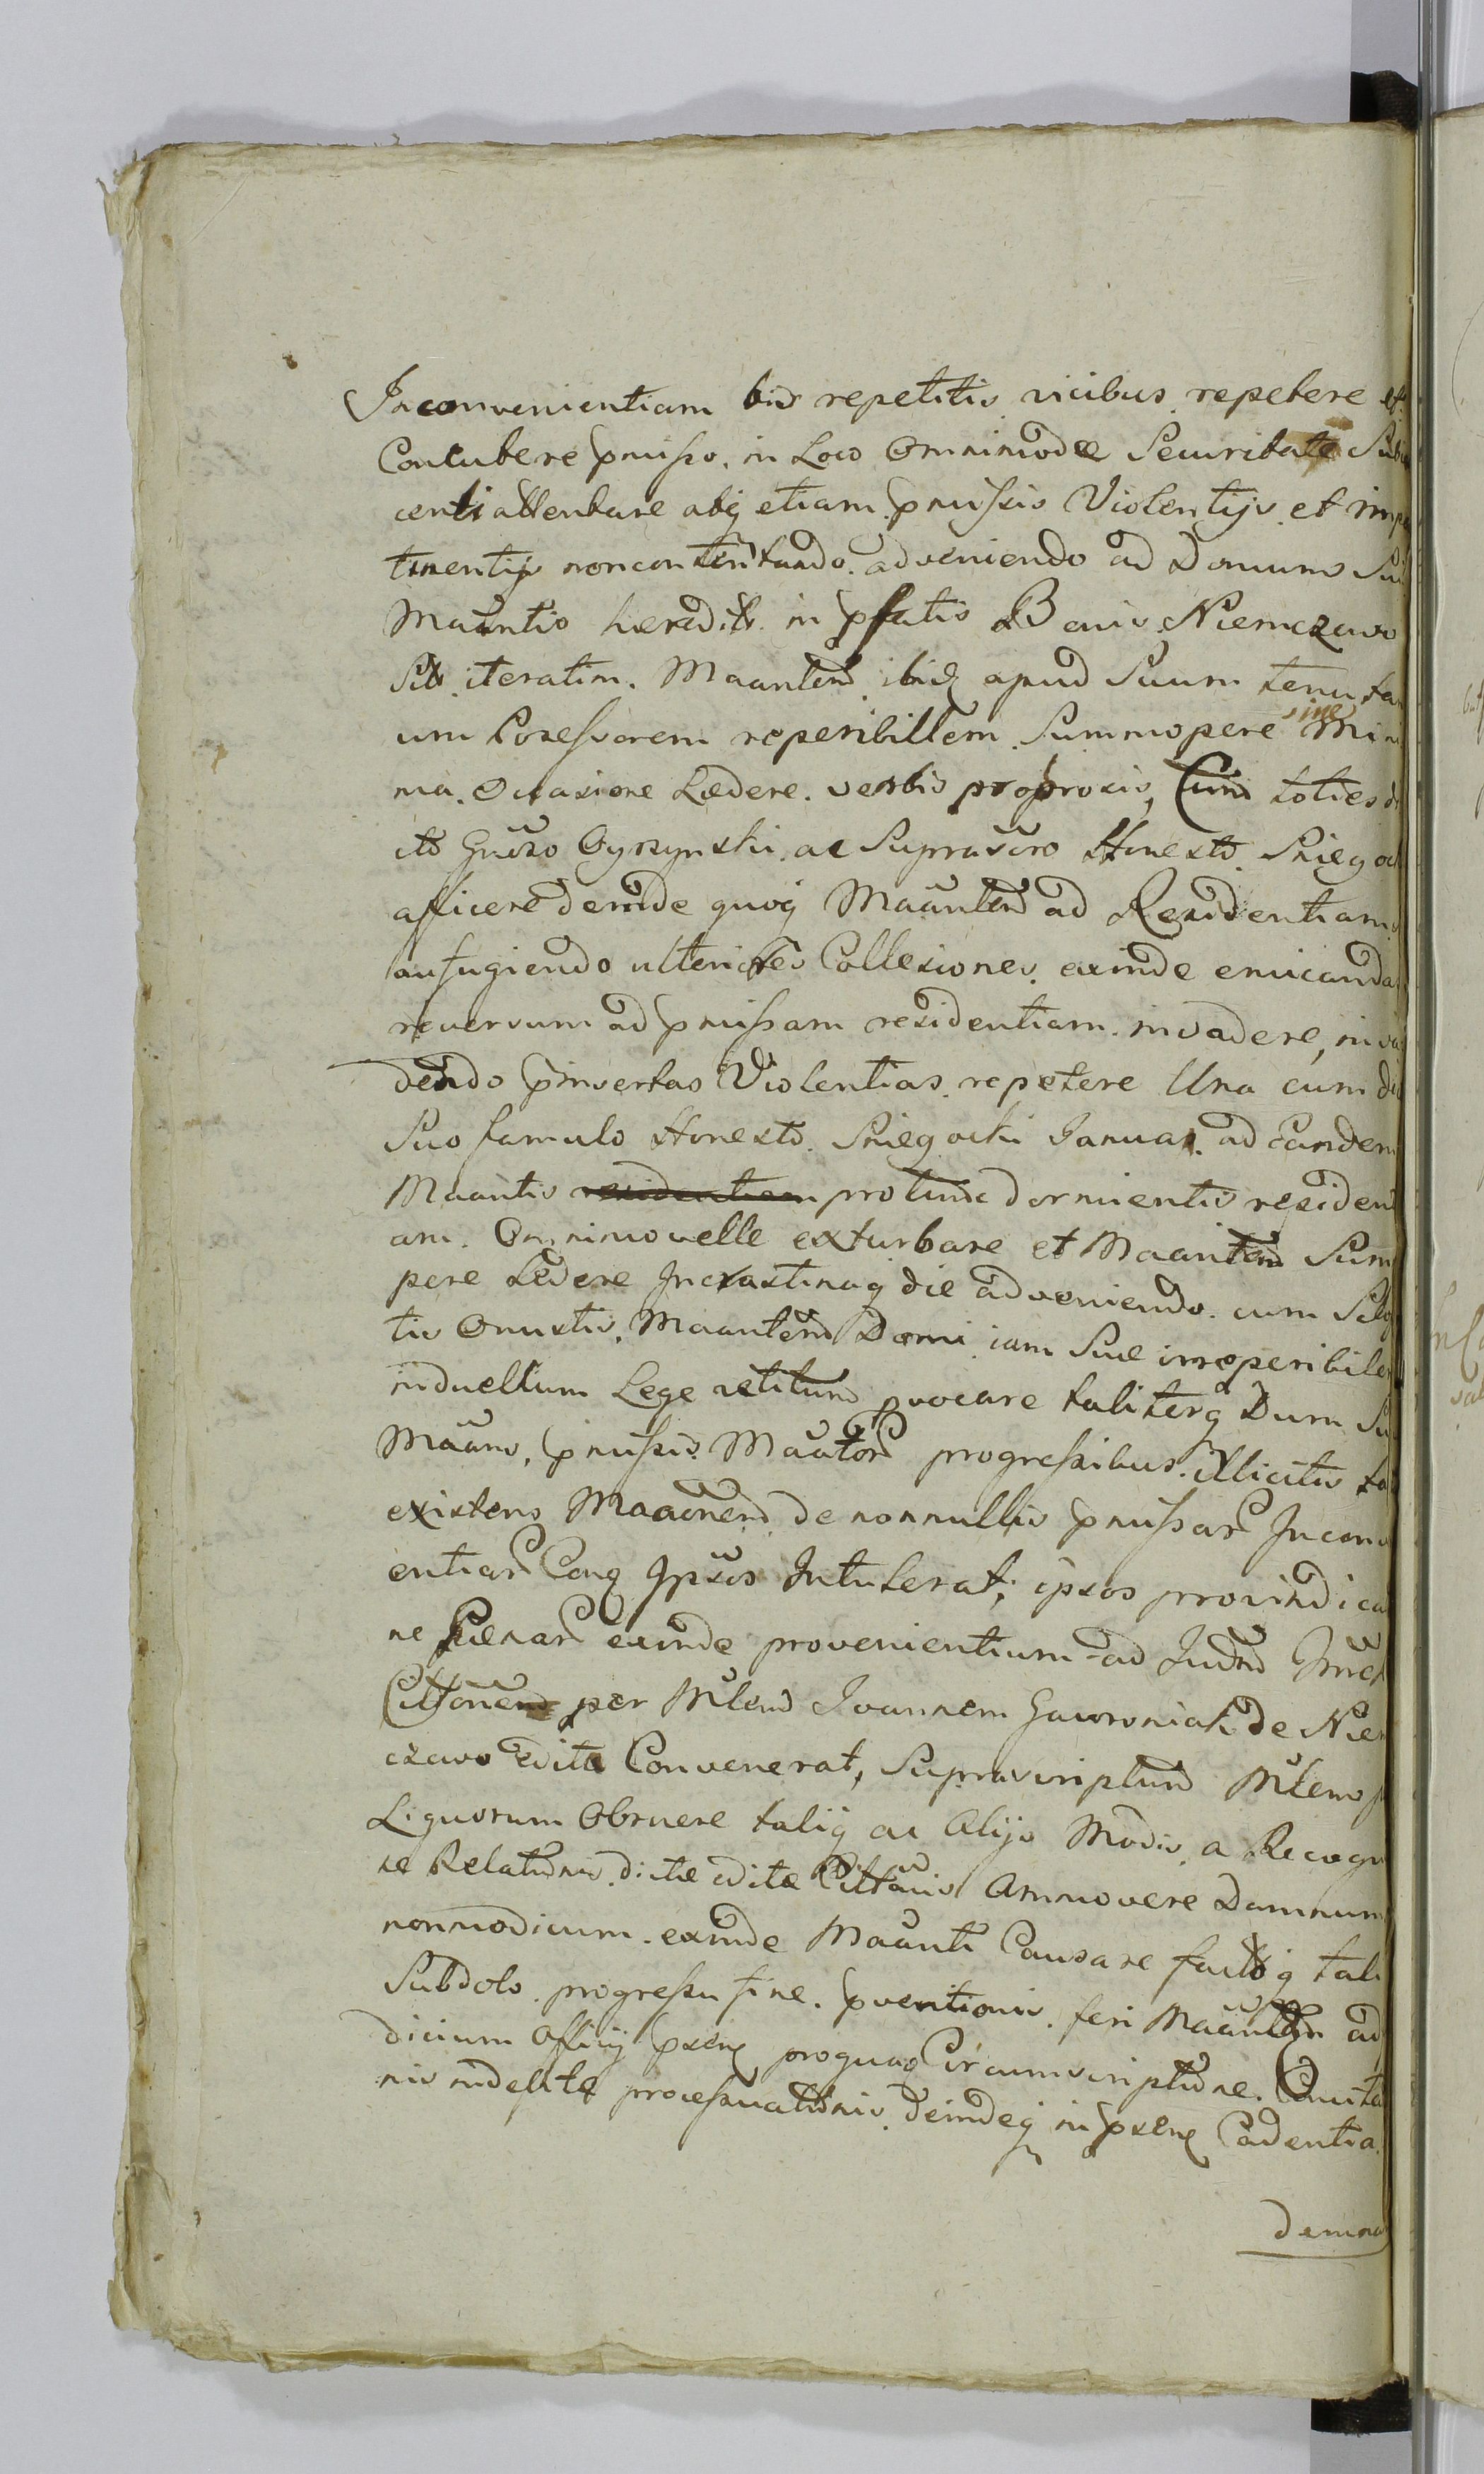 Inconvenientiam bis repetitis vicibus repetere et
Concubere pmisso, in Loco Omnimodæ Securitate Sub
centi attentare atq etiam pmissis Violentijs et imp
tinentijs non contentando adveniendo ad Domum Sui
Maantis hæredit. in pfatis Bonis Niemczewo
Sit. iteratim. Maantem ibid apud Suum tenuta
um Possessorem reperibillem Summopere sine Min
ma Occasione Lædere verbis probrosis, Cum toties d
cto Gnoso Ogrzynski ac Suprascro Honesto Sniegoc
afficere deinde quoq Maantem ad Residentiam
aufugiendo ulteriores Collesiones exinde emicanda
reversum ad pmissam residentiam invadere, inva
dendo pinsertas Violentias repetere Una cum di
Suo famulo Honesto Sniegocki Januas ad Eandem
Maantis residentiam protunc dormientis residen
am Omnimo velle exturbare et Maantem Sum
pere Lædere Incrastinaq die adveniendo cum Sclo
tis Onustis, Maantem Domi iam Suæ irreperibilem
in duellum Lege vetitum pvocare taliterq Dum Su
Maans, pmissis Maator progressibus illicitis ta
existens Maaonem de nonnullis pmissar Incon
entiar Conq Ipsos Intulerat, ipsos pro vindica
ne Pænar exinde provenientium ad Judm
Cittonem per Mlem Joannem Gawroniak de Niem
czewo edita Convenerat, Suprascriptum Mlem
Liquorum Obruere taliq ac Alijs Modis a Recogn
ne Relationis dictæ editæ Cittonis Ammovere Damnum
non modicum exinde Maanti Causare factoq tali
Subdolo progressu fine pventionis feri Maantem ad
dicium Officij psens proquaq Circumscriptione
nis indebite processuationis deindeq in psens Cadentia
Demna